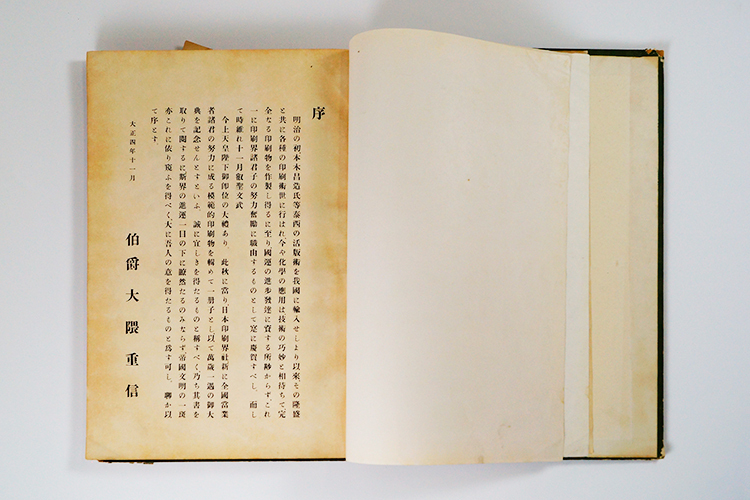 序
明治の初本木昌造氏等泰西の活版術を我國に輸入せしより以來、その隆盛
と共に各種の印刷術世に行はれ今や化學の應用は技術の巧妙と相待ちて完
全なる印刷物を作製し得るに至り國運の進步發達に資する所尠からず、これ
一に印刷界諸君子の努力奮勵に職由するものとして寔に慶賀すべし、而し
て時維れ十一月叡聖文武
今上天皇陛下御卽位の大禮あり、此秋に當り日本印刷界社新に全國當業
者諸君の努力に成る模範的印刷物を輯めて一册子とし以て萬歲一遇の御大
典を記念せんとすといふ、誠に宜しきを得たるものと稱すべく乃ち其書を
取りて閱するに斯界の進運一目の下に瞭然たるのみならず、帝國文明の一斑
亦これに依り窺ふを得べく、大に吾人の意を得たるものと爲す可し、聊か以
て序とす
大正四年十一月
伯爵大隈重信